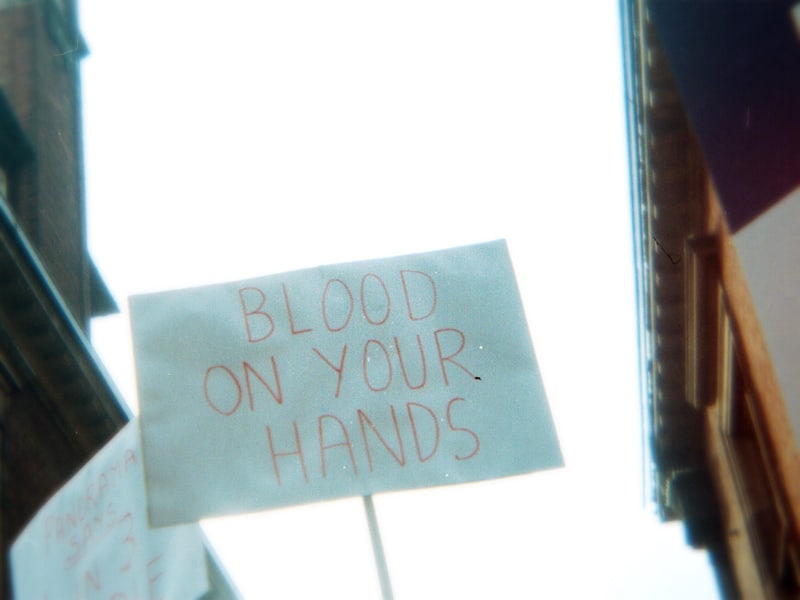 BLOOD
ON YOUR
HANDS
PANORAMA
SAYS 3
IN